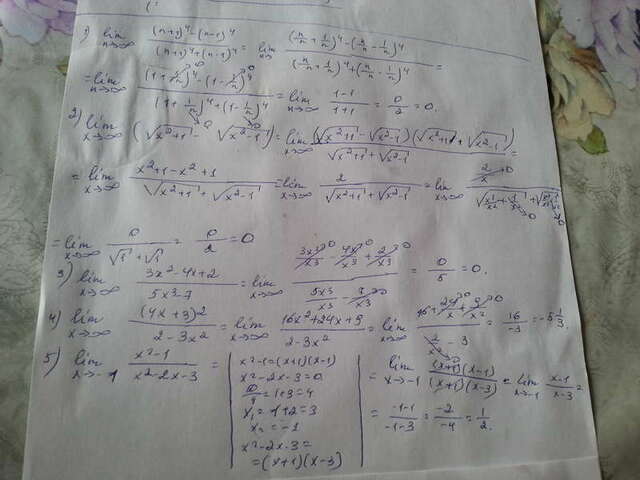 1) lim n→∞ ((n+1)⁴-(n-1)⁴)/((n+1)⁴+(n-1)⁴) = lim n→ ((n/n + 1/n)⁴-(n/n - 1/n)⁴)/((n/n + 1/n)⁴+(n/n - 1/n)⁴) =
= lim n→∞ ((1+1/n)⁴-(1-1/n)⁴)/((1+1/n)⁴+(1-1/n)⁴) = lim n→∞ (1-1)/(1+1) = 0/2 = 0.
2) lim x→∞ (√(x²+1) - √(x²-1)) = lim x→∞ ((√(x²+1) - √(x²-1))(√(x²+1) + √(x²-1)))/(√(x²+1) + √(x²-1)) =
= lim x→∞ (x²+1-x²+1)/(√(x²+1) + √(x²-1)) = lim x→∞ 2/(√(x²+1) + √(x²-1)) = lim x→∞
= lim x→∞ 0/(√1 + √1) = 0/2 = 0
3) lim x→∞ (3x²-4x+2)/(5x³-7) = lim x→∞ (3x²/x³ - 4x/x³ + 2/x³)/(5x³/x³ - 7/x³) = 0/5 = 0.
4) lim x→∞ (4x+3)²/(2-3x²) = lim x→∞ (16x²+24x+9)/(2-3x²) = lim x→∞ (16+24/x+9/x²)/(2/x² - 3) = 16/-3 = -5 1/3.
5) lim x→-1 (x²-1)/(x²-2x-3) =
x²-1=(x+1)(x-1)
x²-2x-3=0
D/4 = 1+3=4
x₁=1+2=3
x₂=-1
x²-2x-3=
=(x+1)(x-3)
= lim x→-1 ((x+1)(x-1))/((x+1)(x-3)) = lim x→-1 (x-1)/(x-3) =
= (-1-1)/(-1-3) = -2/-4 = 1/2.